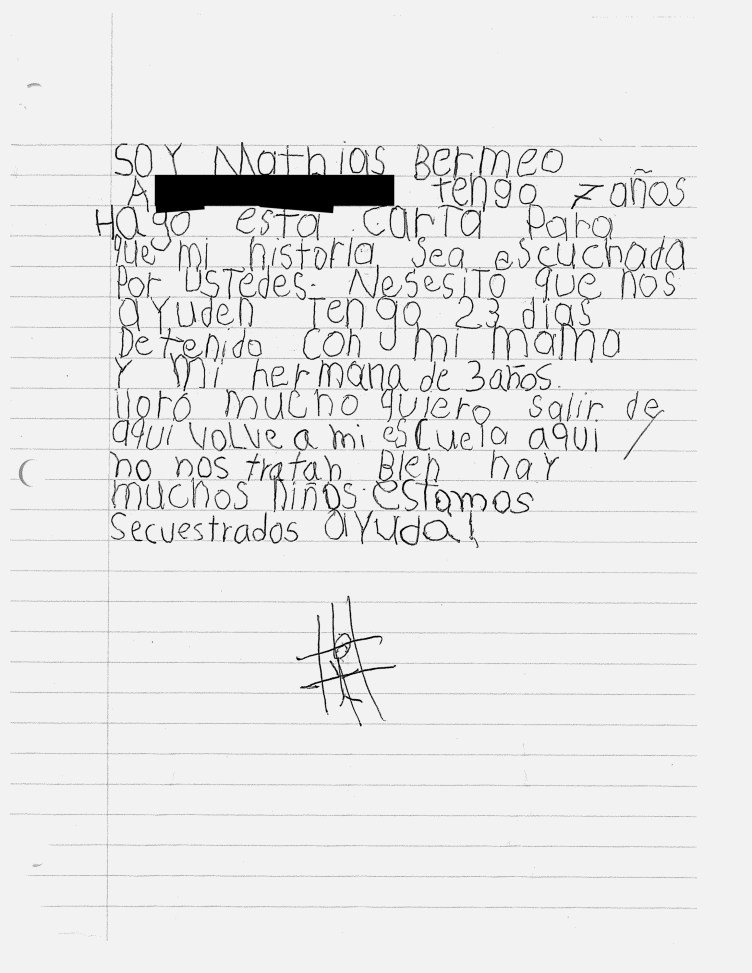 SOY Mathias Bermeo
A tengo 7 años
Hago esta carta Para
que mi historia sea escuchada
Por USTedes. NesesiTo que nos
ayuden Tengo 23 dias
Detenido con mi mama
Y mi hermana de 3 años.
lloro mucho quiero salir de
aqui volve a mi escuela aqui
no nos tratan Bien hay
muchos niños. estamos
secuestrados ayuda!